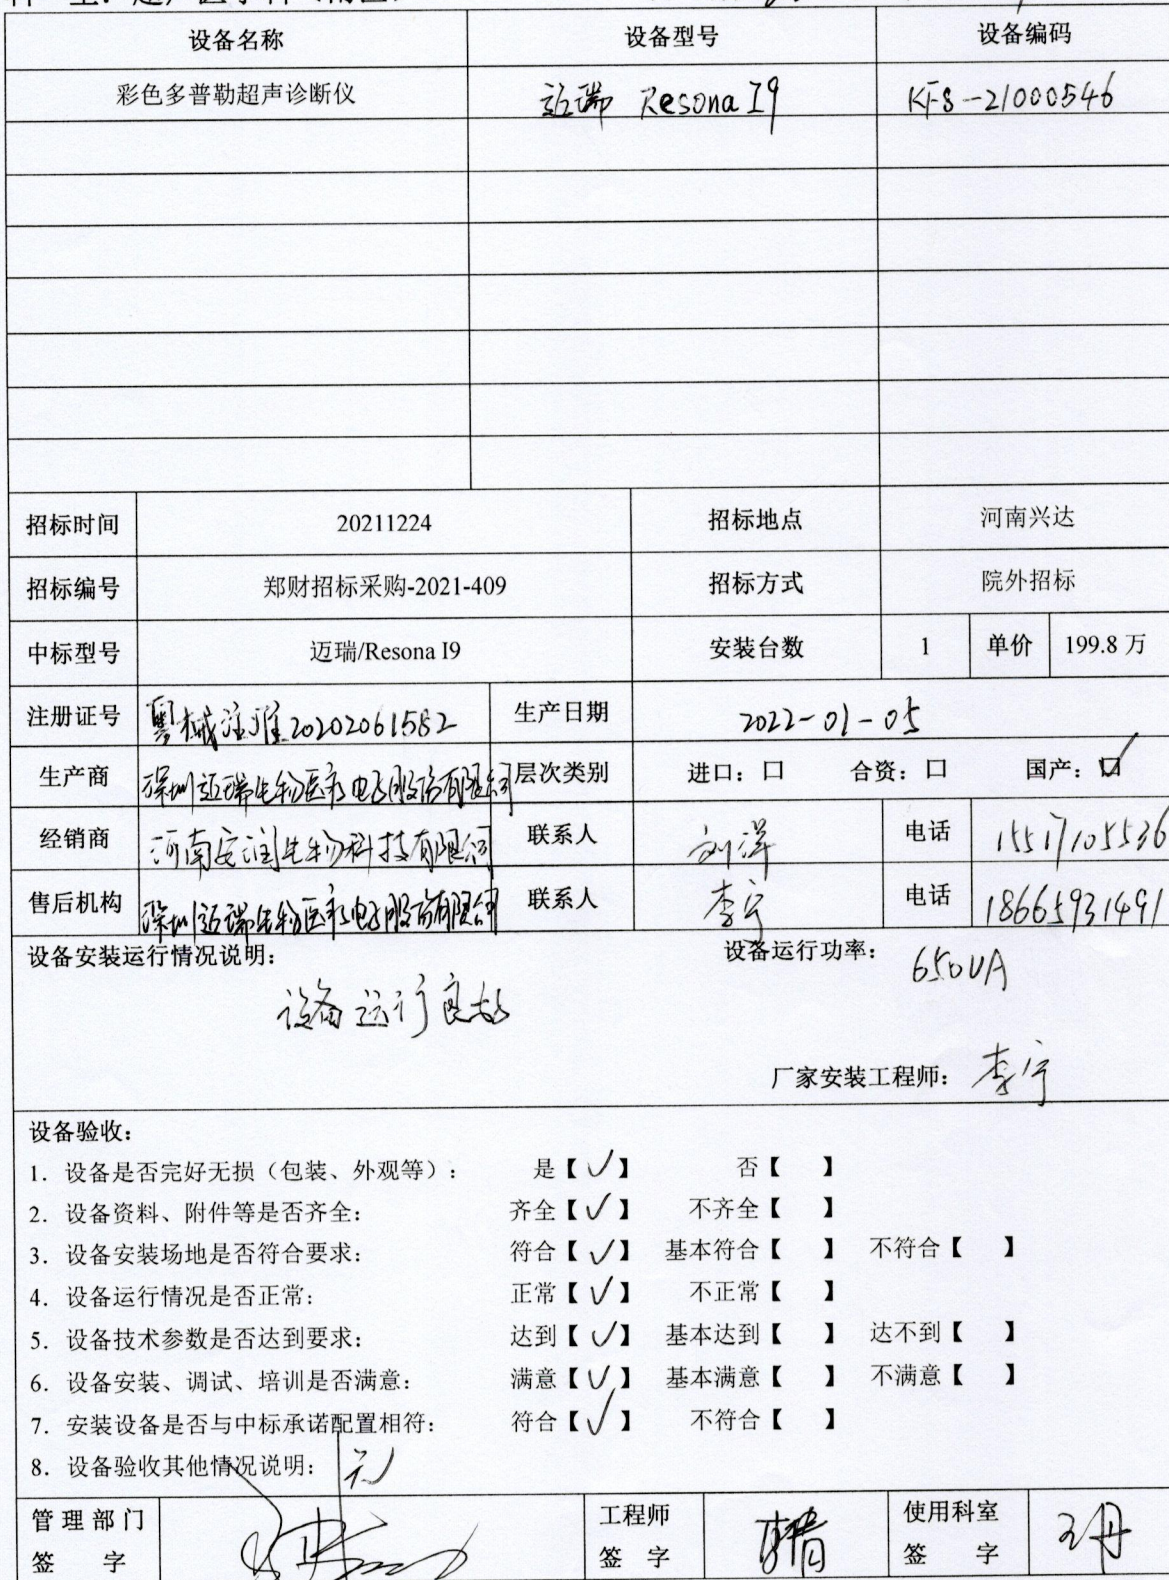 设备名称 设备型号 设备编码
彩色多普勒超声诊断仪 迈瑞 Resona I9 KF8-21000546
招标时间 20211224 招标地点 河南兴达
招标编号 郑财招标采购-2021-409 招标方式 院外招标
中标型号 迈瑞/Resona I9 安装台数 1 单价 199.8 万
注册证号 粤械注准20202061582 生产日期 2022-01-05
生产商 深圳迈瑞生物医疗电子股份有限公司 层次类别 进口：口 合资：口 国产：☑
经销商 河南安润生物科技有限公司 联系人 刘洋 电话 15517105536
售后机构 深圳迈瑞生物医疗电子股份有限公司 联系人 李宁 电话 18665931491
设备安装运行情况说明： 设备运行功率： 650VA
设备运行良好
厂家安装工程师： 李宁
设备验收：
1. 设备是否完好无损（包装、外观等）： 是【✓】 否【 】
2. 设备资料、附件等是否齐全： 齐全【✓】 不齐全【 】
3. 设备安装场地是否符合要求： 符合【✓】 基本符合【 】 不符合【 】
4. 设备运行情况是否正常： 正常【✓】 不正常【 】
5. 设备技术参数是否达到要求： 达到【✓】 基本达到【 】 达不到【 】
6. 设备安装、调试、培训是否满意： 满意【✓】 基本满意【 】 不满意【 】
7. 安装设备是否与中标承诺配置相符： 符合【✓】 不符合【 】
8. 设备验收其他情况说明： 无
管理部门 工程师 使用科室
签 字 签 字 签 字 王丹